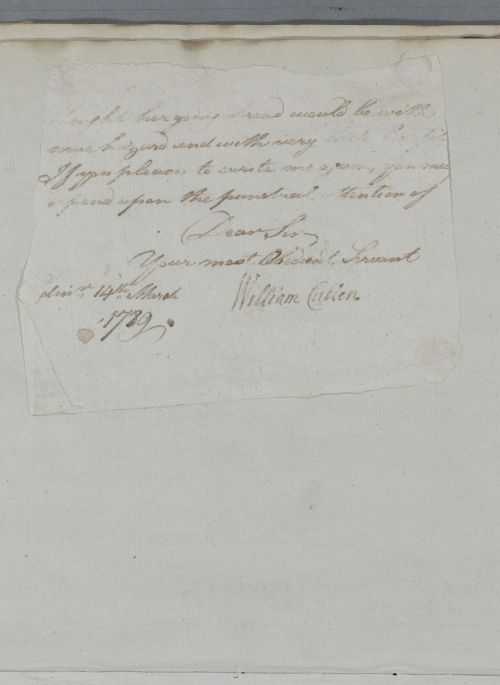 thought her going abroad would be with
some hazard and with very little benefit
If you please to write me again, you may
depend upon the punctual attention of
Dear Sir
Your most Obedient Servant
Edinr. 14th March William Cullen
1789.